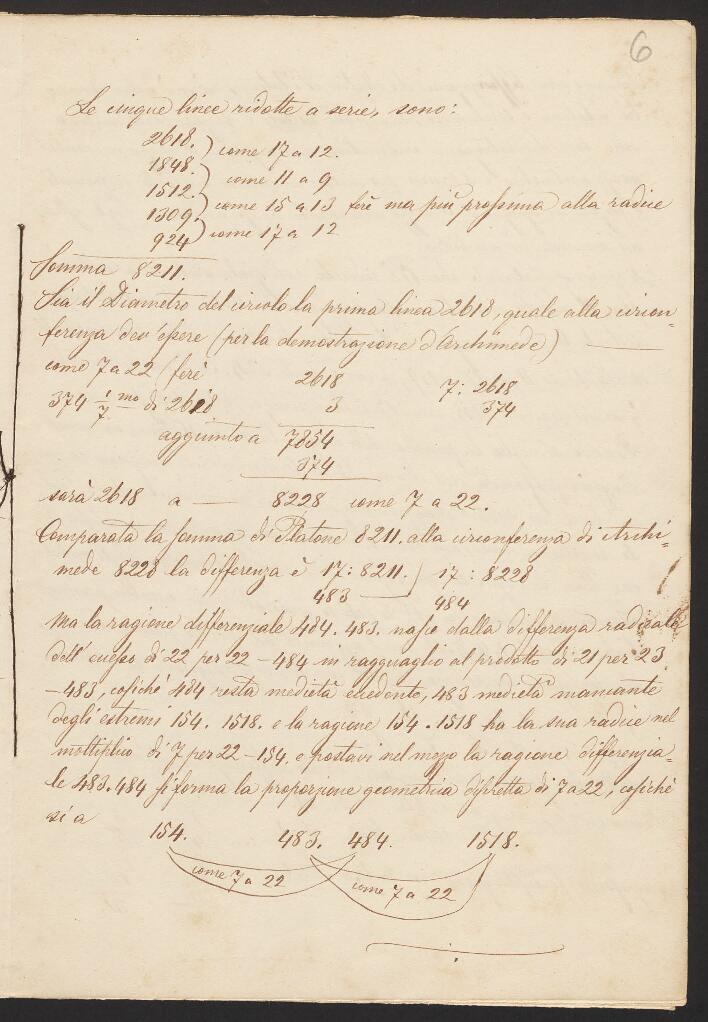 6
Le cinque linee ridotte a serie, sono:
2618. ) come 17 a 12.
1848. ) come 11 a 9
1512. ) come 15 a 13 ferè ma più prossima alla radice
1309. ) come 17 a 12
924
Somma 8211.
Sia il Diametro del circolo la prima linea 2618, quale alla circon=
ferenza dev'essere (per la demostrazione d'Archimede) ——
come 7 a 22 (ferè 2618 7: 2618
374 1/7 mo di 2618 3 374
aggiunto a 7854
374
sarà 2618 a — 8228 come 7 a 22.
Comparata la somma di Platone 8211. alla circonferenza di Archi=
mede 8228 la differenza è 17: 8211. ) 17: 8228
483 — 484
Ma la ragione differenziale 484. 483. nasce dalla differenza radicale
dell' di 22 per 22 – 484 in ragguaglio al prodotto di 21 per 23
– 483, cosichè 484 resta medietà eccedente, 483 medietà mancante
degli estremi 154. 1518. e la ragione 154. 1518 ha la sua radice nel
moltiplico di 7 per 22 – 154. e postavi nel mezzo la ragione differenzia=
le 483. 484 si forma la proporzione geometrica di 7 a 22, cosichè
si a
154. 483. 484. 1518.
come 7 a 22 come 7 a 22